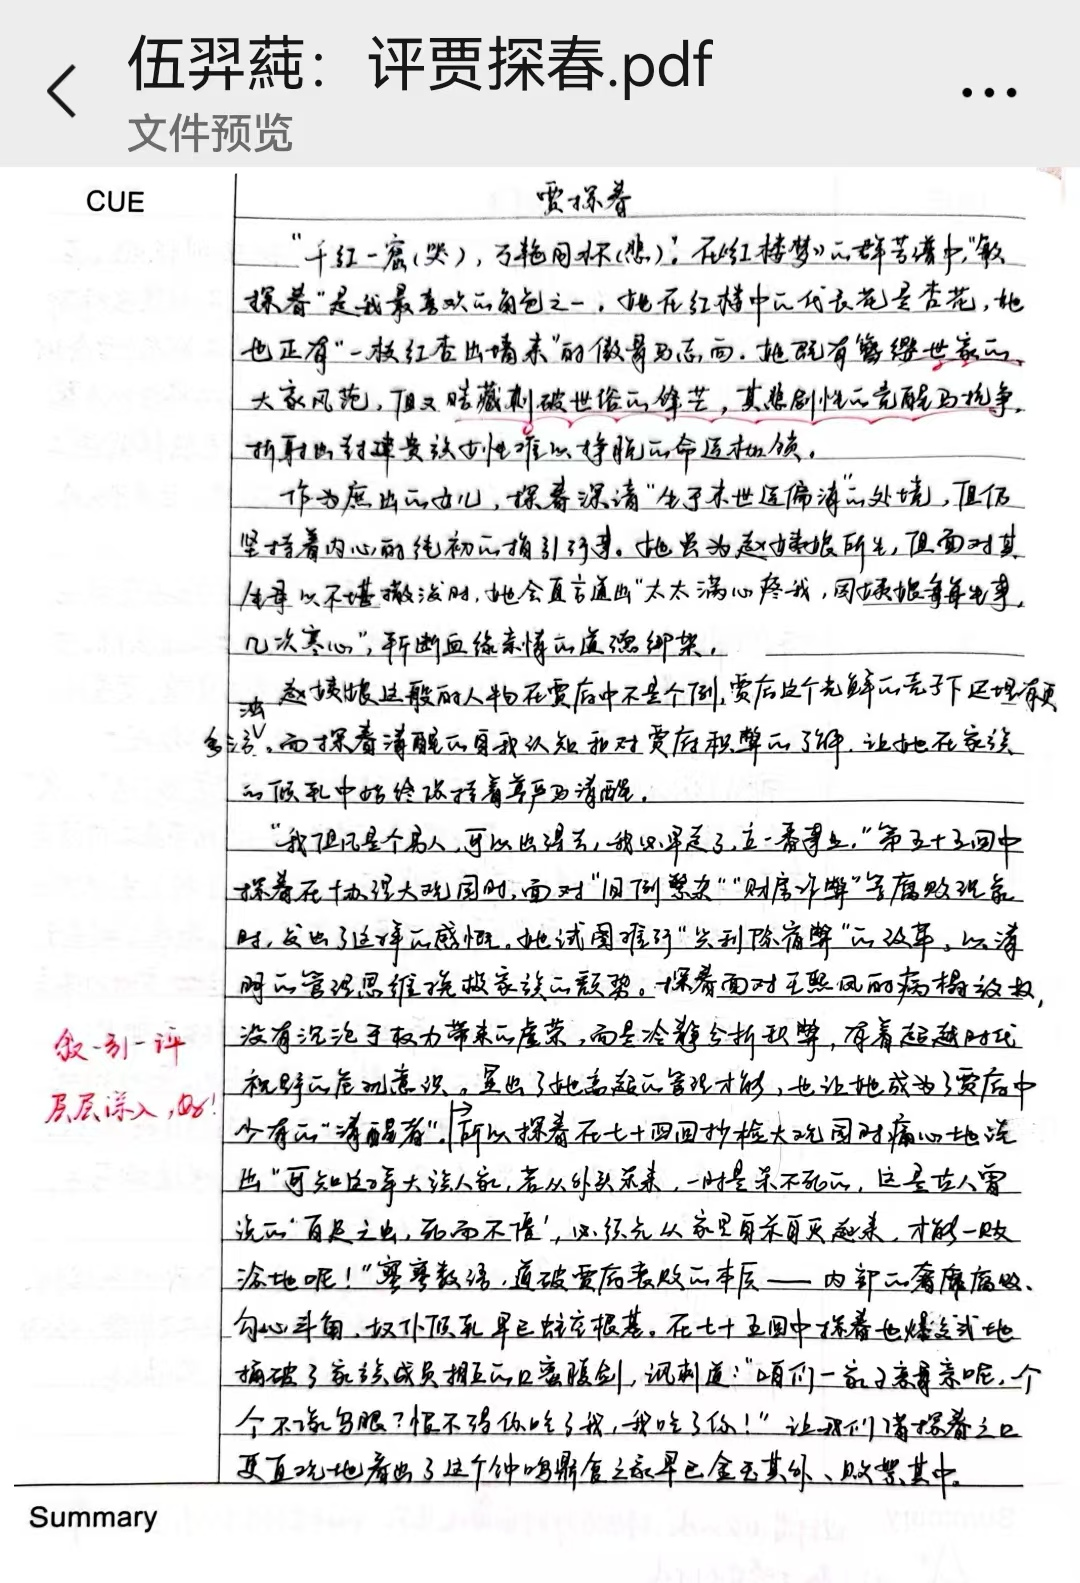 伍羿蒓：评贾探春.pdf
文件预览
CUE
贾探春
“千红一窟(哭)，万艳同杯(悲)”。在《红楼梦》的群芳谱中，“敏
探春”是我最喜欢的角色之一。她在红楼中的代表花是杏花，她
也正有“一枝红杏出墙来”的傲骨与志向。她既有簪缨世家的
大家风范，但又暗藏刺破世俗的锋芒，其悲剧性的觉醒与抗争，
折射出封建贵族女性难以挣脱的命运枷锁。
作为庶出的女儿，探春深谙“生于末世运偏消”的处境，但仍
坚持着内心的纯初的指引行事。她虽为赵姨娘所生，但面对其
生母以不堪撒泼时，她会直言道出“太太满心疼我，因姨娘每每生事，
几次寒心”，斩断血缘亲情的道德绑架。
赵姨娘这般的人物在贾府中不是个例，贾府这个光鲜的壳子下还埋有更
多污浊，而探春清醒的自我认知和对贾府积弊的了解，让她在家族
的倾轧中始终保持着尊严与清醒。
“我但凡是个男人，可以出得去，我必早走了，立一番事业。”第五十五回中
探春在协理大观园时，面对“旧例繁杂”“财房作弊”等腐败现象
时，发出了这样的感慨。她试图推行“兴利除宿弊”的改革，以清
明的管理思维挽救家族的颓势。探春面对王熙凤的病榻放权，
没有沉沦于权力带来的虚荣，而是冷静分析积弊，有着超越时代
视野的危机意识。突出了她高超的管理才能，也让她成为了贾府中
少有的“清醒者”。所以探春在七十四回抄检大观园时痛心地说
出“可知这样大族人家，若从外头杀来，一时是杀不死的，这是古人曾
说的‘百足之虫，死而不僵’，必须先从家里自杀自灭起来，才能一败
涂地呢！”寥寥数语，道破贾府衰败的本质——内部的奢靡腐败、
勾心斗角、奴仆倾轧早已蛀空根基。在七十五回中探春也爆发式地
捅破了家族成员相互的口蜜腹剑，讽刺道：“咱们一家子亲骨肉呢，个
个不像乌眼？恨不得你吃了我，我吃了你！”让我们借探春之口
更直观地看出了这个钟鸣鼎食之家早已金玉其外、败絮其中。
叙-引-评
层层深入，好！
Summary